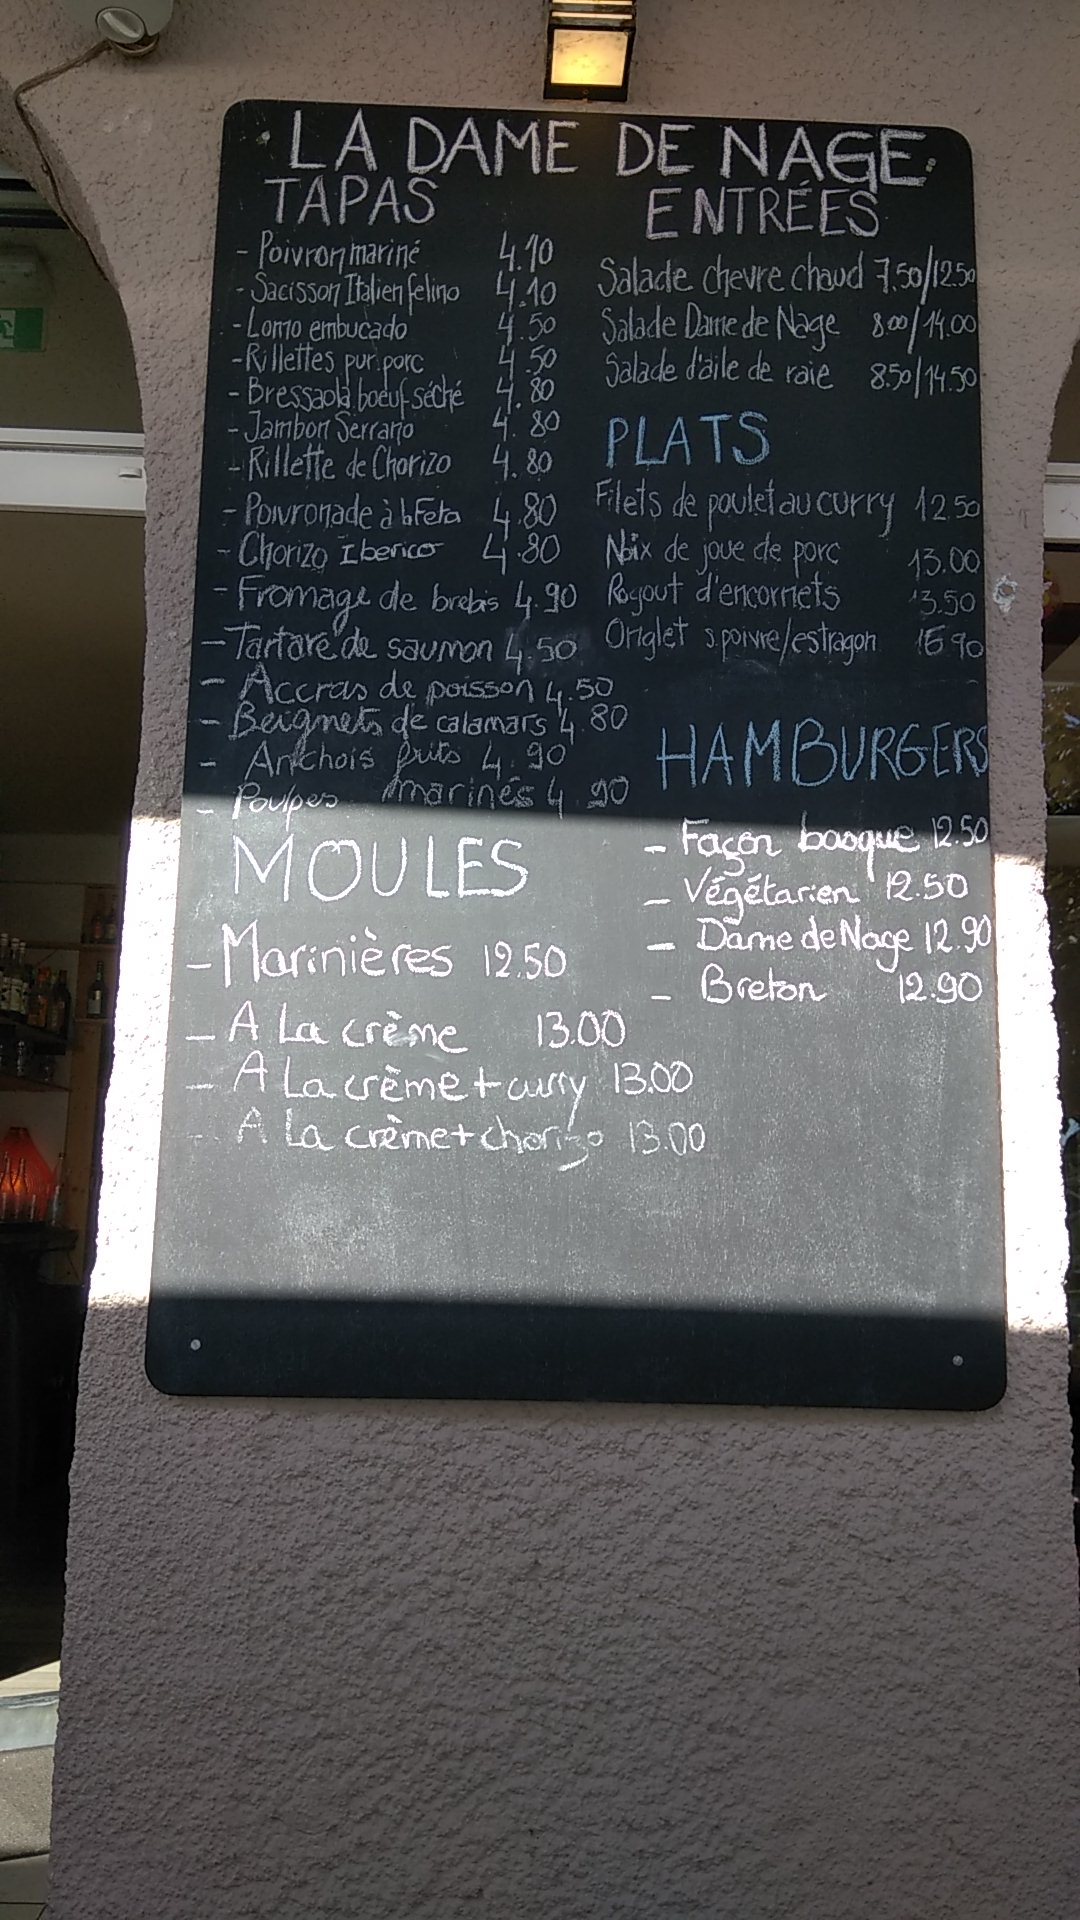 LA DAME DE NAGE
TAPAS
- Poivron mariné 4.10
- Sacisson Italien felino 4.10
- Lomo embucado 4.50
- Rillettes pur porc 4.50
- Bressaola boeuf séché 4.80
- Jambon Serrano 4.80
- Rillette de Chorizo 4.80
- Poivronade à la Feta 4.80
- Chorizo Iberico 4.80
- Fromage de brebis 4.90
- Tartare de saumon 4.50
- Accras de poisson 4.50
- Beignets de calamars 4.80
- Anchois frits 4.90
- Poulpes marinés 4.90
MOULES
- Marinières 12.50
- A La crème 13.00
- A La crème + curry 13.00
- A La crème + chorizo 13.00
ENTRÉES
Salade chevre chaud 7.50/12.50
Salade Dame de Nage 8.00/14.00
Salade d'aile de raie 8.50/14.50
PLATS
Filets de poulet au curry 12.50
Noix de joue de porc 13.00
Ragout d'encornets 13.50
Onglet s.poivre/estragon
HAMBURGERS
- Façon basque 12.50
- Végétarien 12.50
- Dame de Nage 12.90
- Breton 12.90